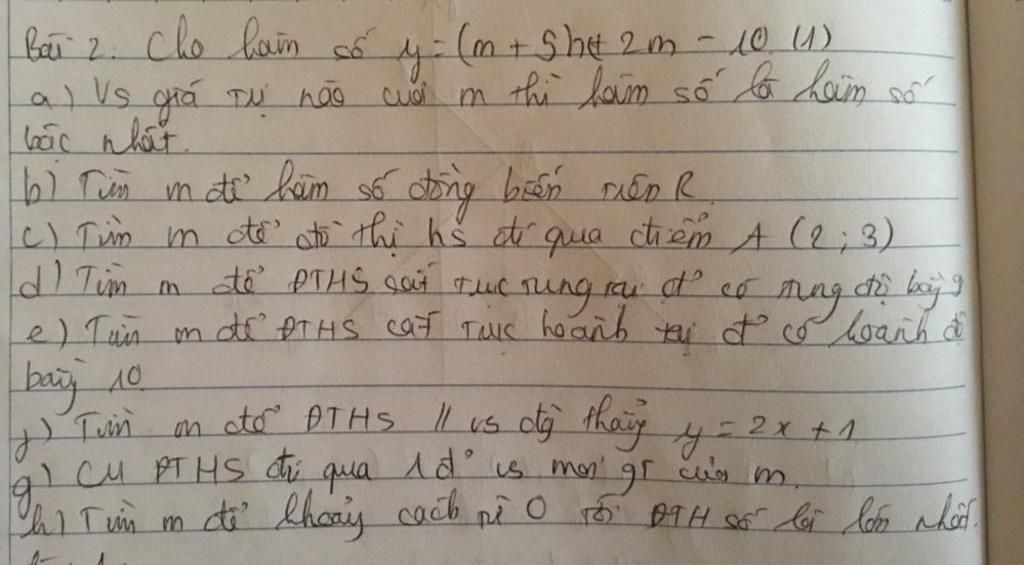 Bài 2: Cho hàm số y = (m + 5)x + 2m - 10 (1)
a) Vs giá trị nào của m thì hàm số là hàm số
bậc nhất.
b) Tìm m để hàm số đồng biến trên R.
c) Tìm m để đồ thị hs đi qua điểm A (2; 3)
d) Tìm m để ĐTHS cắt trục tung tại đ' có tung độ bằng 9
e) Tìm m để ĐTHS cắt trục hoành tại đ' có hoành độ
bằng 10
f) Tìm m để ĐTHS // vs đg thẳng y = 2x + 1
g) CM ĐTHS đi qua 1 đ' vs mọi gt của m.
h) Tìm m để khoảng cách từ O tới ĐTH số là lớn nhất.